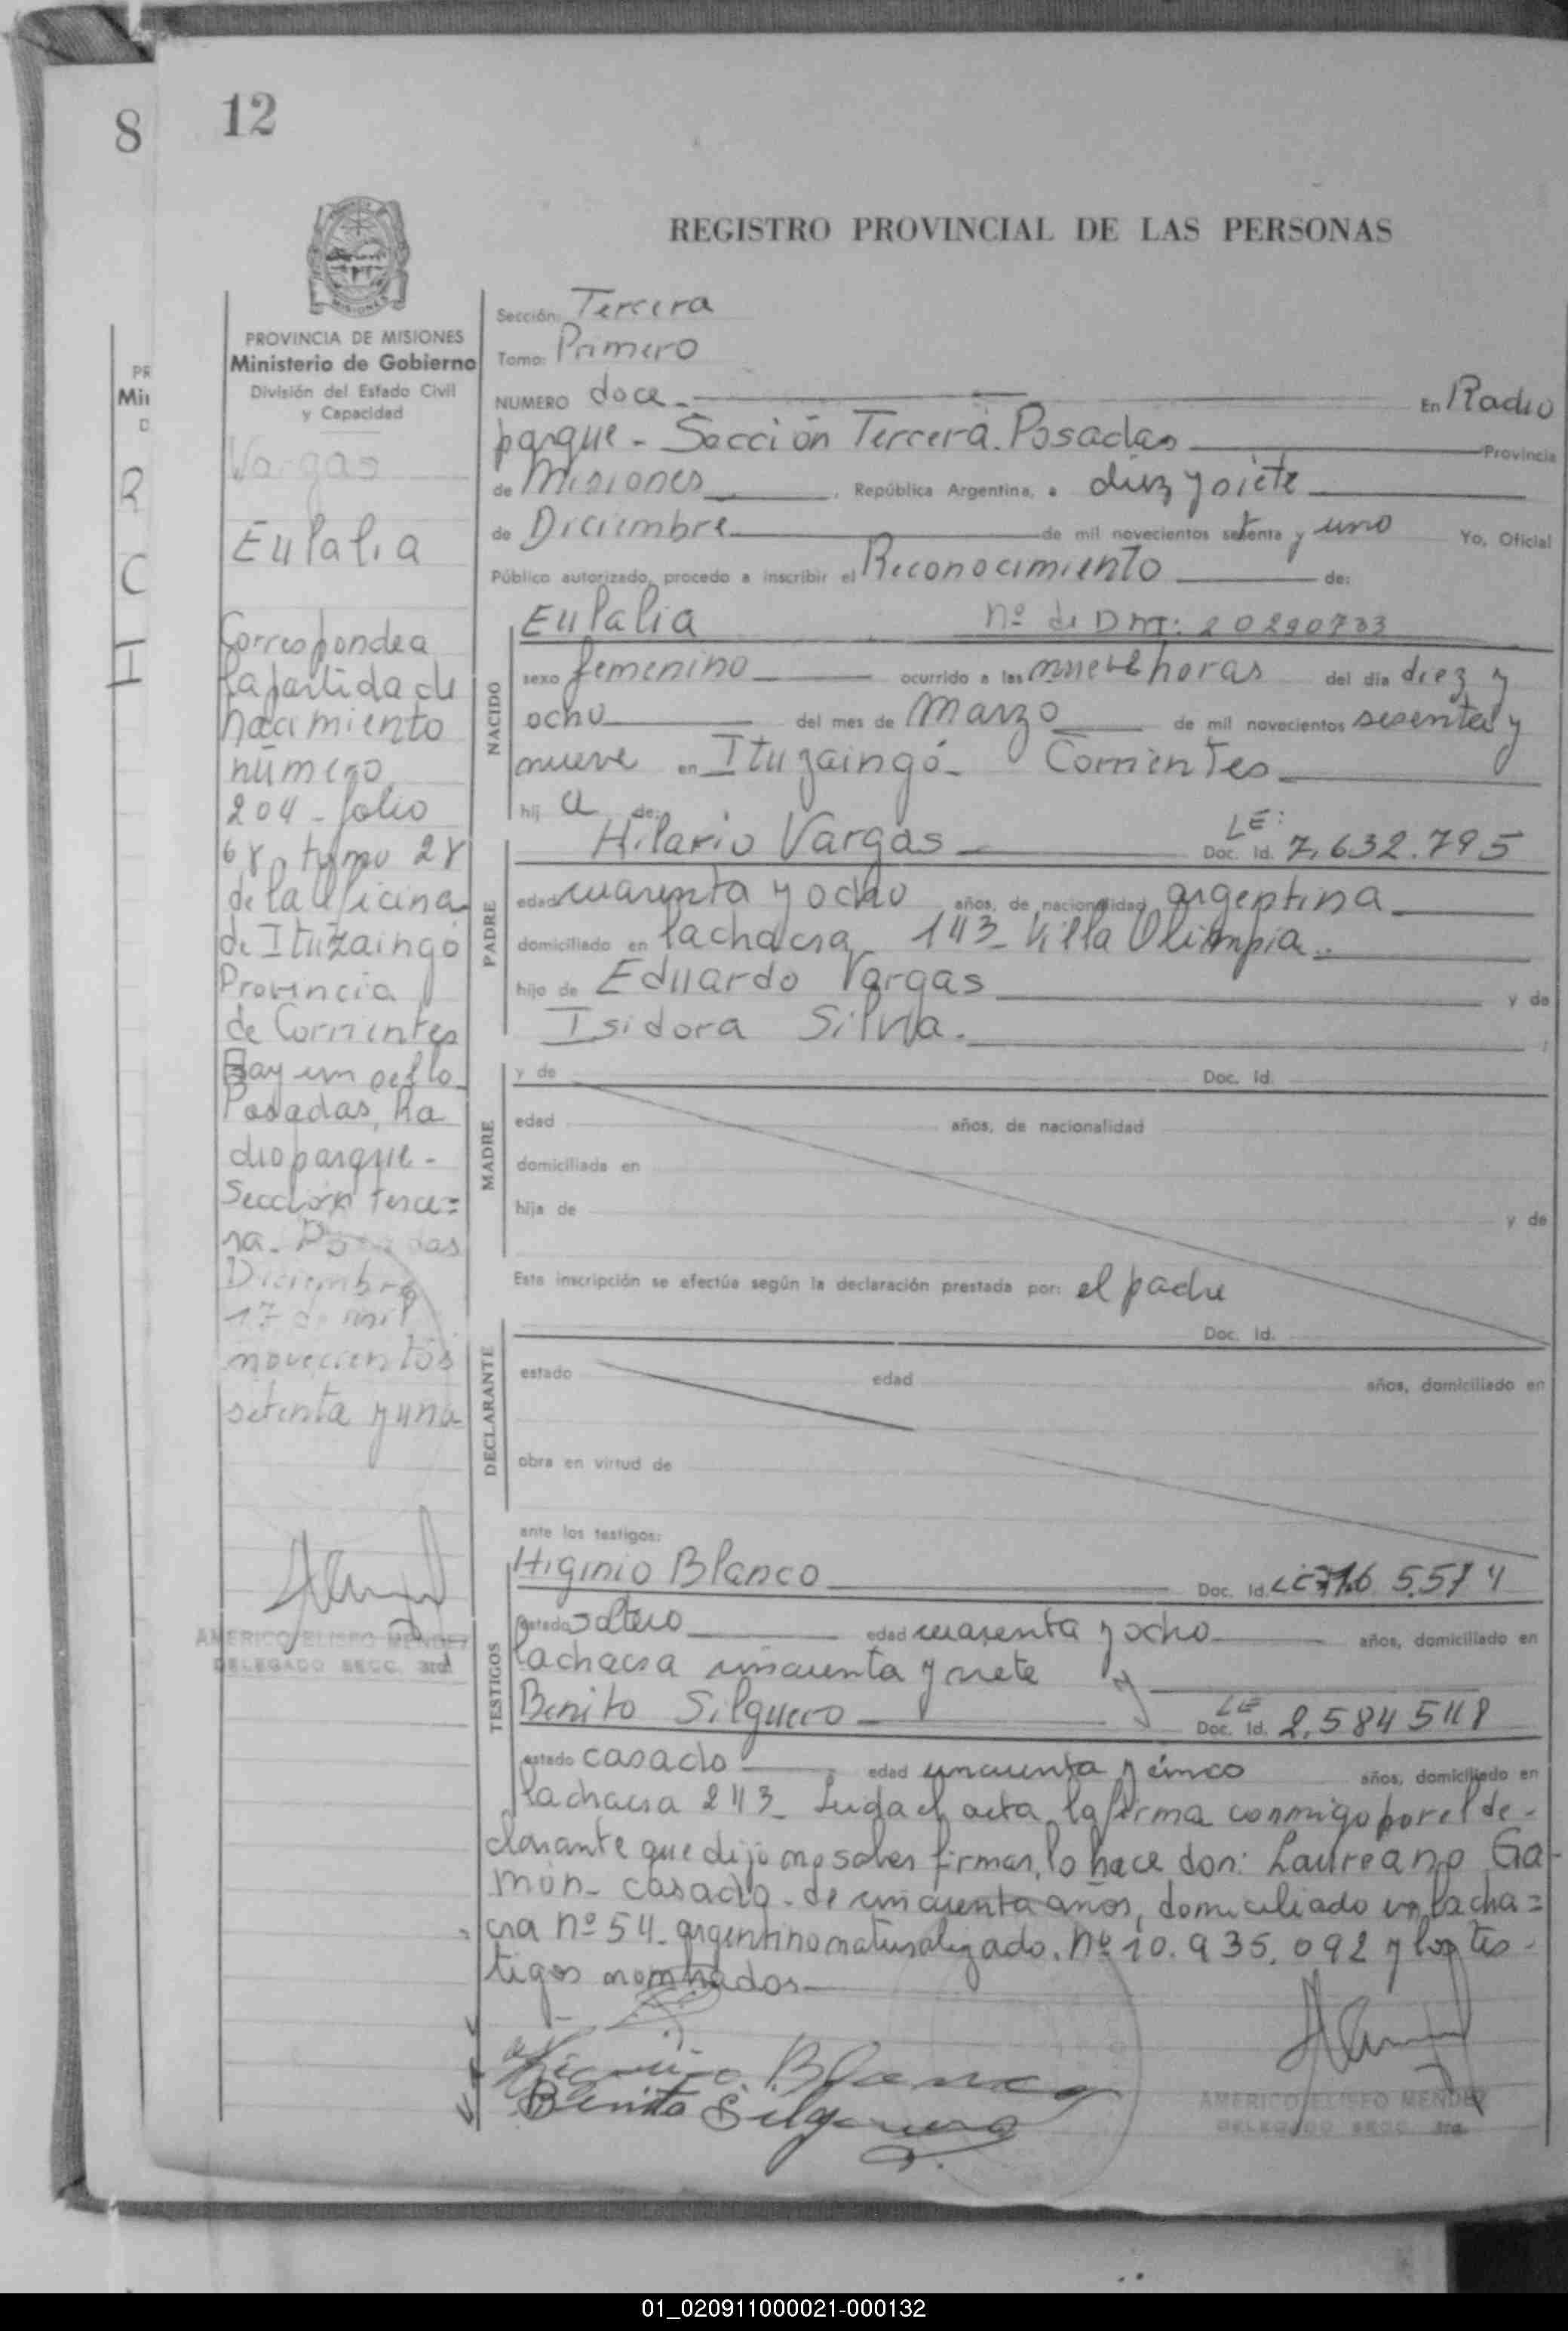 8
12
REGISTRO PROVINCIAL DE LAS PERSONAS
MISIONES
PROVINCIA DE MISIONES
Ministerio de Gobierno
División del Estado Civil
y Capacidad
Vargas
Eulalia
Corresponde a
la partida de
nacimiento
número
204 - folio
68, tomo 28
de la Oficina
de Ituzaingó
Provincia
de Corrientes
Hay un sello
Posadas, Ra
dioparque -
Sección terce=
ra. Posadas
Diciembre
17 de mil
novecientos
setenta y uno
AMERICO ELISEO MENDEZ
DELEGADO SECC. 3ra.
Sección: Tercera
Tomo: Primero
NUMERO doce - En Radio
parque - Sección Tercera. Posadas Provincia
de Misiones, República Argentina, a diez y siete
de Diciembre de mil novecientos setenta y uno Yo, Oficial
Público autorizado, procedo a inscribir el Reconocimiento de:
NACIDO
Eulalia nº de DNI: 20290733
sexo femenino ocurrido a las nueve horas del día diez y
ocho del mes de Marzo de mil novecientos sesenta y
nueve en Ituzaingó - Corrientes
hij a de:
PADRE
Hilario Vargas LE: Doc. Id. 7.632.795
edad cuarenta y ocho años, de nacionalidad argentina
domiciliado en la chacra 143 - Villa Olimpia
hijo de Eduardo Vargas y de
Isidora Silvia.
MADRE
y de Doc. Id.
edad años, de nacionalidad
domiciliada en
hija de y de
Esta inscripción se efectúa según la declaración prestada por: el padre
DECLARANTE
Doc. Id.
estado edad años, domiciliado en
obra en virtud de
ante los testigos:
TESTIGOS
Higinio Blanco Doc. Id. LE
estado soltero edad cuarenta y ocho años, domiciliado en
la chacra cincuenta y siete y
Benito Silguero LE Doc. Id. 2.584 518
estado casado edad cincuenta y cinco años, domiciliado en
la chacra 243 - Leida el acta, la firma conmigo por el de-
clarante que dijo no saber firmar, lo hace don: Laureano Ga-
món - casado - de cincuenta años, domiciliado en la cha=
cra nº 54 - argentino naturalizado. nº 10.935.092 y los tes-
tigos nombrados
Higinio Blanco
Benito Silguero
AMERICO ELISEO MENDEZ
DELEGADO SECC. 3ra.
01_020911000021-000132